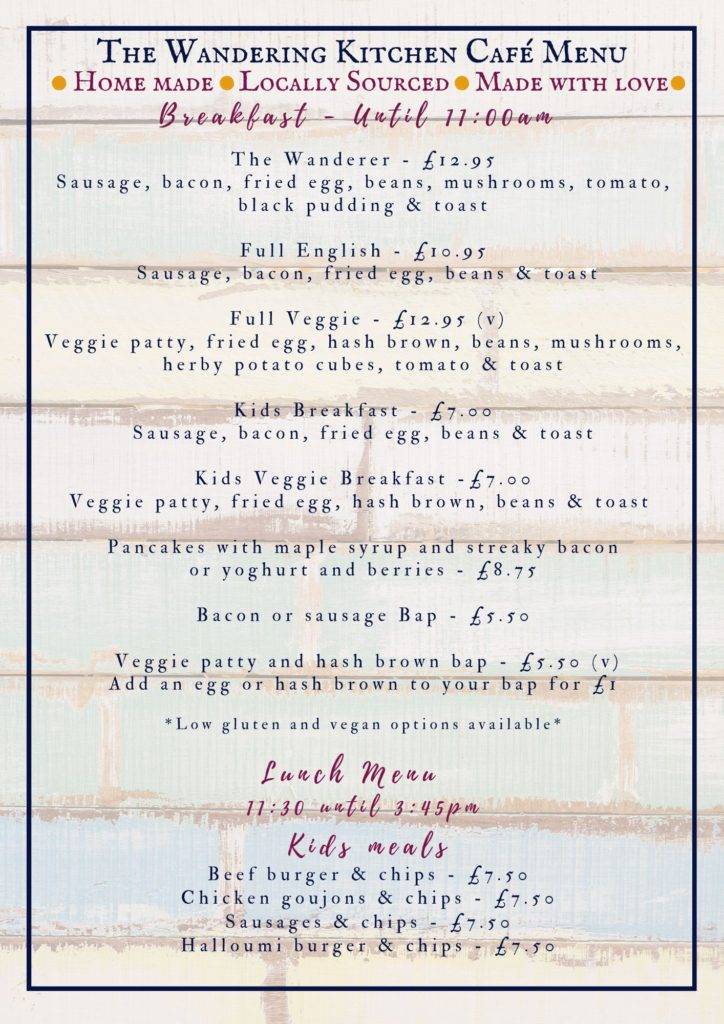 The Wandering Kitchen Café Menu
Home made Locally Sourced Made with love
Breakfast - Until 11:00am
The Wanderer - £12.95
Sausage, bacon, fried egg, beans, mushrooms, tomato,
black pudding & toast
Full English - £10.95
Sausage, bacon, fried egg, beans & toast
Full Veggie - £12.95 (v)
Veggie patty, fried egg, hash brown, beans, mushrooms,
herby potato cubes, tomato & toast
Kids Breakfast - £7.00
Sausage, bacon, fried egg, beans & toast
Kids Veggie Breakfast -£7.00
Veggie patty, fried egg, hash brown, beans & toast
Pancakes with maple syrup and streaky bacon
or yoghurt and berries - £8.75
Bacon or sausage Bap - £5.50
Veggie patty and hash brown bap - £5.50 (v)
Add an egg or hash brown to your bap for £1
*Low gluten and vegan options available*
Lunch Menu
11:30 until 3:45pm
Kids meals
Beef burger & chips - £7.50
Chicken goujons & chips - £7.50
Sausages & chips - £7.50
Halloumi burger & chips - £7.50